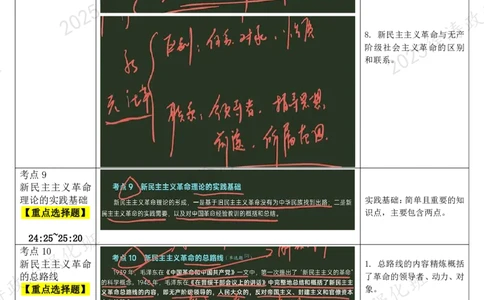 8. 新民主主义革命与无产
阶级社会主义革命的区别
和联系。
区别：任务 对象、性质
联系：领导者、指导思想、
前途、所属范围
考点 9
新民主主义革命
理论的实践基础
【重点选择题】
24:25~25:20
考点 9 新民主主义革命理论的实践基础
新民主主义革命理论的形成，一是基于旧民主主义革命没有为中华民族找到出路；二是新
民主主义革命的实践需要，以及对中国革命经验教训的概括和总结。
实践基础：简单且重要的知
识点，主要包含两点。
考点 10
新民主主义革命
的总路线
【重点选择题】
考点 10 新民主主义革命的总路线
1939 年，毛泽东在《中国革命和中国共产党》一文中，第一次提出了“新民主主义革命”
的科学概念。1948 年，毛泽东《在晋绥干部会议上的讲话》中完整地总结和概括了新民主主
义革命总路线的内容，即无产阶级领导的，人民大众的，反对帝国主义、封建主义和官僚资本
1. 总路线的内容精炼概括
了革命的领导者、动力、对
象。